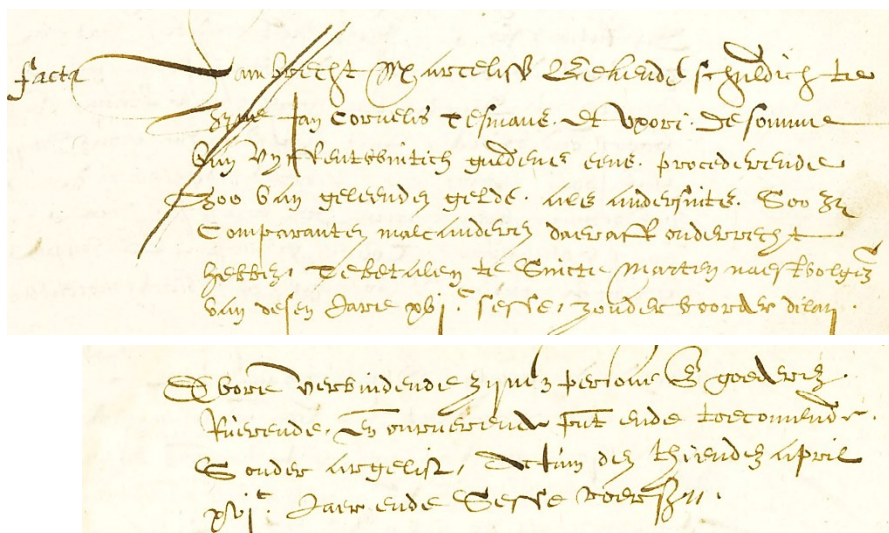 facta
Lambrecht Marcelisz bekende schuldich te
zijne Jan Cornelis Tesmans et uxori de somme
van vyffentwintich guldens eens procederende
Soo van geleenden gelde als andersints Soo zy
Comparanten malcanderen daeraff onderrecht
hebben, Te betalen te Sincte Marten naestvolgen
van desen Jaere xvjc sesse, zonder voorder dilay
Daervoren verbindende zynen persone en goederen
Ruerende en onruerende pnt ende toecomende
Sonder argelist, Actum den thienden april
xvjc Jaer ende Sesse voersz